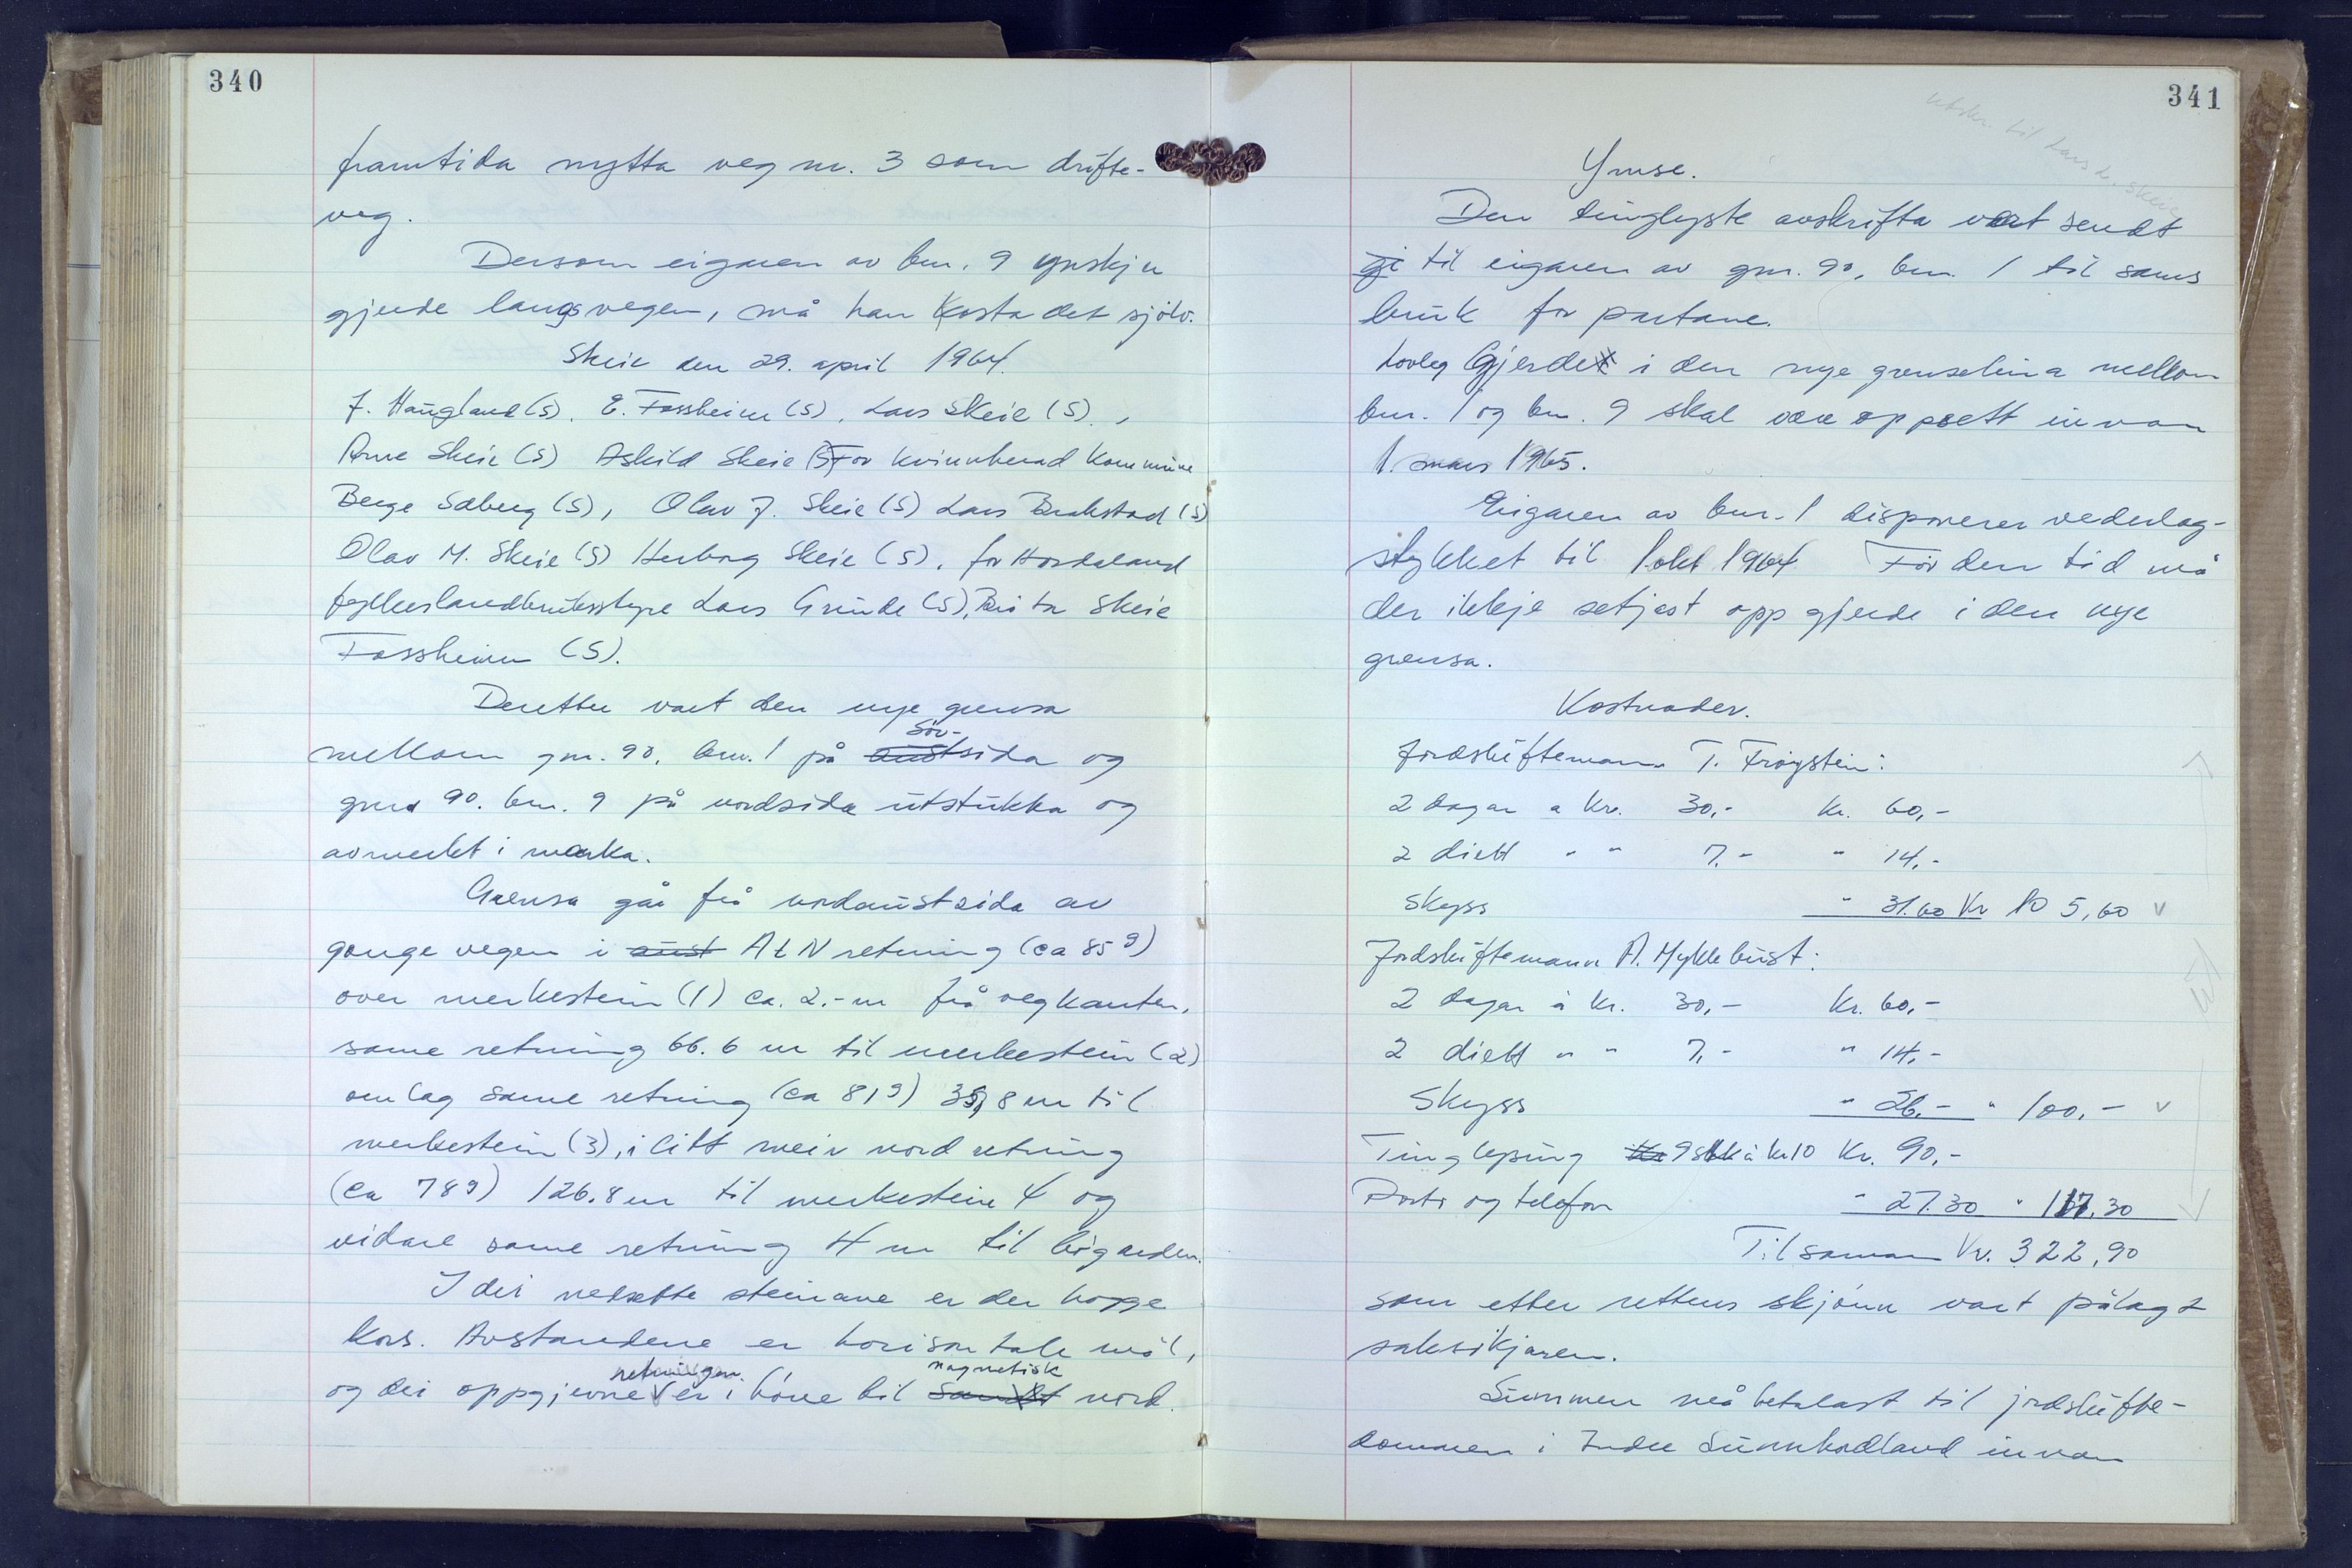 340
framtida nytta veg nr. 3 som drifte-
veg.
Dersom eigaren av bnr. 9 ynskjer
gjerde langs vegen, må han kosta det sjølv.
Skeie den 29. april 1964.
J. Haugland (S). E. Fossheim (S), Lars Skeie (S).,
Arne Skeie (S) Askild Skeie (S) For Kvinnherad Kommune
Berge Sæberg (S), Olav J. Skeie (S) Lars Bakstad (S)
Olav M. Skeie (S) Herborg Skeie (S), for Hordaland
fylkeslandbruksstyre Lars Grinde (S), Brita Skeie
Fossheim (S).
Deretter vart den nye grensa
mellom gnr. 90, bnr. 1 på aust sør-sida og
gnr 90. bnr. 9 på nordsida utstukka og
avmerkt i marka.
Grensa går frå nordaustsida av
gangevegen i aust AtN retning (ca 85 g)
over merkestein (1) ca. 2.-m frå vegkanten,
same retning 66.6 m til merkestein (2)
om lag same retning (ca 81 g) 35,8 m til
merkestein (3), i litt meir nord retning
(ca 78 g) 126.8 m til merkestein 4 og
vidare same retning 4 m til bøgarden.
I dei nedsette steinane er der hogge
kors. Avstandene er horisontale mål,
og dei oppgjevne retningar er i høve til magnetisk nord.
341
Utskr. til Lars L. Skeie
Ymse.
Den tinglyste avskrifta vart sendt
gi til eigaren av gnr. 90, bnr. 1 til sams
bruk for partane.
Lovleg Gjerde i den nye grenselina mellom
bnr. 1 og bnr. 9 skal vere oppsett innan
1. mars 1965.
Eigaren av bnr. 1 disponerer vederlag-
stykket til 1. okt 1964 Før den tid må
der ikkje setjast opp gjerde i den nye
grensa.
Kostnader.
Jordskiftemann T. Frøystein:
2 dagar a kr. 30,- kr. 60,-
2 diett " " 7.- " 14,-
Skyss " 31.60 Kr 105,60 v
Jordskiftemann A. Myklebust:
2 dagar à kr. 30,- Kr. 60,-
2 diett " " 7,- " 14,-
Skyss " 26,- " 100,- v
Tinglysing Kr 9 stk à kr 10 Kr. 90,-
Porto og telefon " 27.30 " 117.30
Tilsaman Kr. 322,90
som etter rettens skjønn vart pålagt
saksøkjaren.
Summen må betalast til jordskifte-
dommaren i Indre Sunnhordland innan